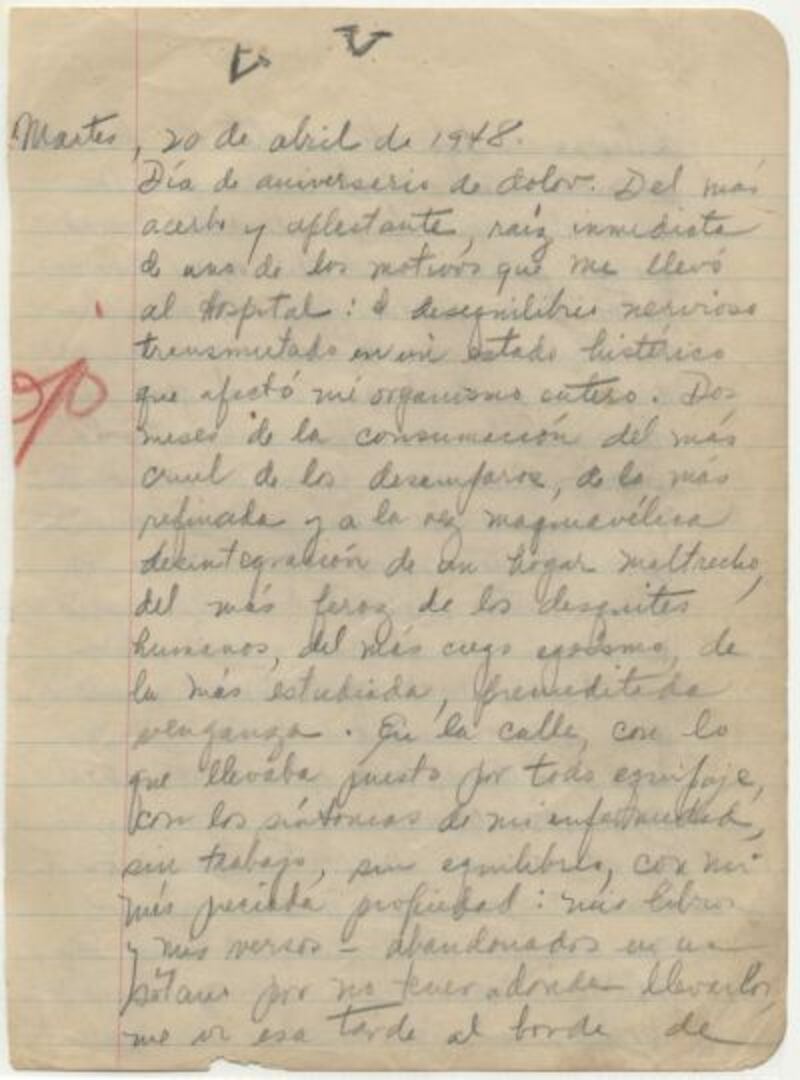 Martes, 20 de abril de 1948.
Día de aniversario de dolor. Del más
acerbo y aplastante, raíz inmediata
de uno de los motivos que me llevó
al Hospital: el desequilibrio nervioso
transmutado en un estado histérico
que afectó mi organismo entero. Dos
meses de la consumación del más
cruel de los desamparos, de la más
refinada y a la vez maquiavélica
desintegración de un hogar maltrecho,
del más feroz de los desquites
humanos, del más ciego egoísmo, de
la más estudiada, premeditada
venganza. En la calle, con lo
que llevaba puesto por todo equipaje,
con los síntomas de mi enfermedad,
sin trabajo, sin equilibrio, con mi
más preciada propiedad: mis libros
y mis versos - abandonados en un
sótano por no tener adonde llevarlos,
me vi esa tarde al borde de